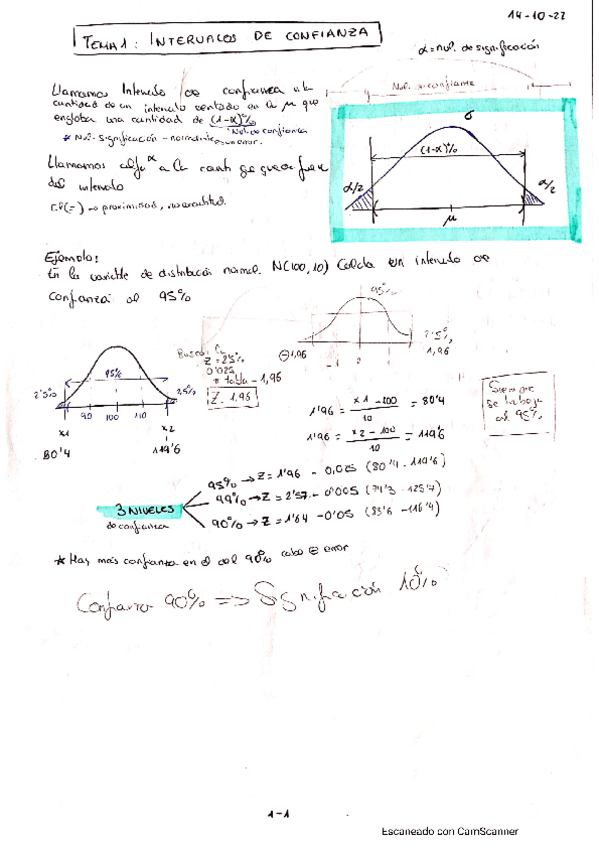 14-10-22
TEMA 1: INTERVALOS DE CONFIANZA
α = nul. de significación
Llamamos Intervalo de confianza a la
cantidad de un intervalo centado en la μ que
engloba una cantidad de (1-α)%
Nul. de confianza
* Nul. significación - normalmente error.
Llamamos alfa α a la cant que queda fuera
del intervalo
→ proximidad, no exactitud.
Nul. de confianza
σ
(1-α)%
α/2
α/2
μ
Ejemplo:
En la variable de distribución normal N(100,10) Calcula un intervalo de
confianza al 95%
95%
2'5%
1,96
-1,96
-1
1
Busco
Z = 2'5%
0'025
* tabla - 1,96
Z. 1.96
95%
2'5%
2,5%
90 100 110
x1
x2
80'4
119'6
1'96 = x1 - 100 / 10 = 80'4
1'96 = x2 - 100 / 10 = 119'6
Siempre
se trabaja
al 95%
3 NIVELES
de confianza
95% → Z = 1'96 - 0,025 (80'4 - 119'6)
99% → Z = 2'57 - 0'005 (74'3 - 125'7)
90% → Z = 1'64 - 0'05 (83'6 - 116'4)
* Hay más confianza en el del 90% cabe error
Confianza 90% => Significación 10%
1-1
Escaneado con CamScanner